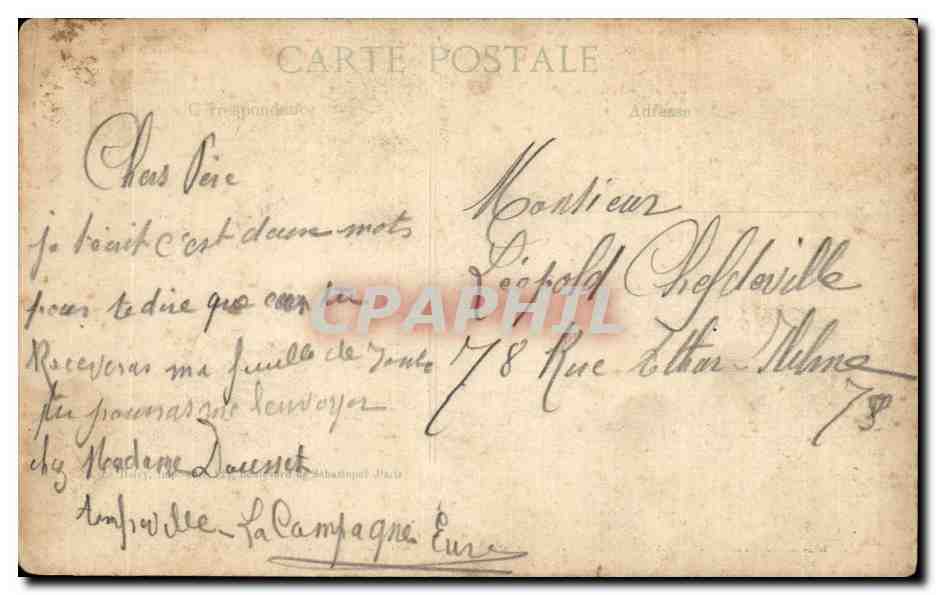 CARTE POSTALE
Correspondance
Adresse
Chers Père
je t'écrit c'est deux mots
pour te dire que quan tu
Receveras ma feuille de route
tu pourras me l'envoyer
chez Madame Dousset
Amfreville-La Campagne Eure
Monsieur
Léopold Chefdeville
78 Rue
boulevard de Sébastopol Paris
CPAPHIL